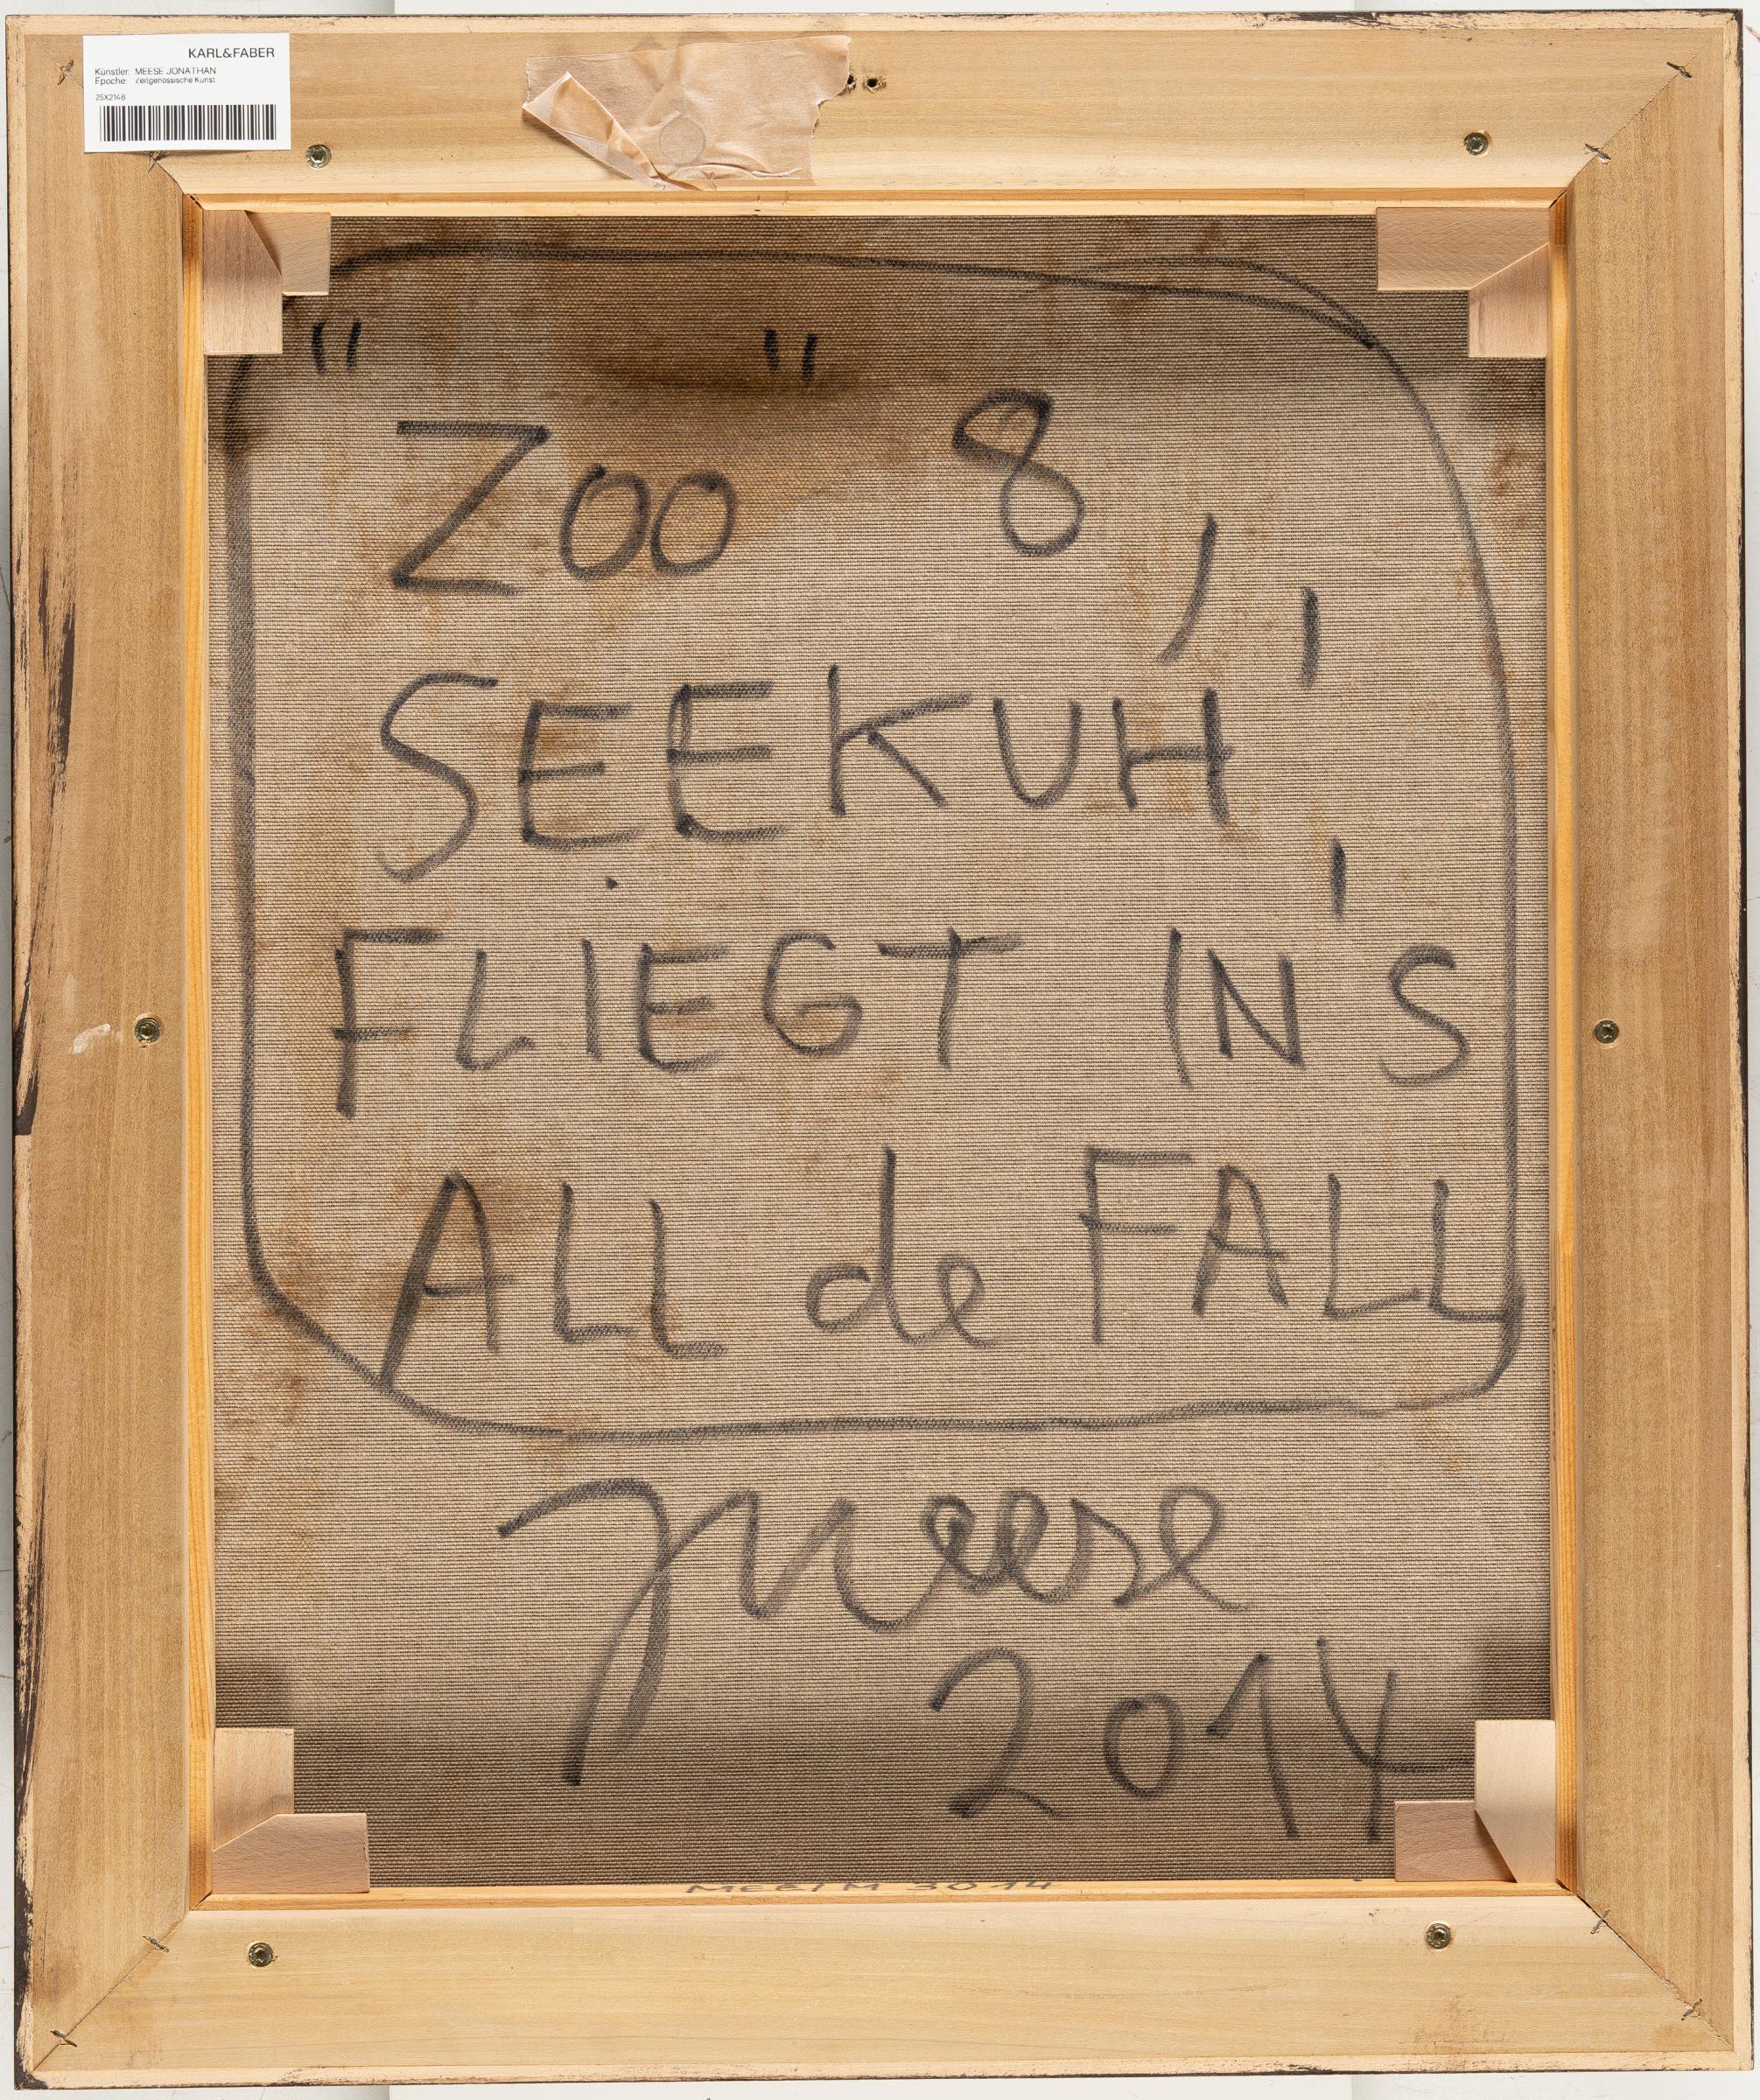 KARL&FABER
Künstler: MEESE JONATHAN
Epoche: Zeitgenössische Kunst
25X2148
"Zoo" 8,
SEEKUH'
FLIEGT IN'S
ALL de FALL
JMeese
2014